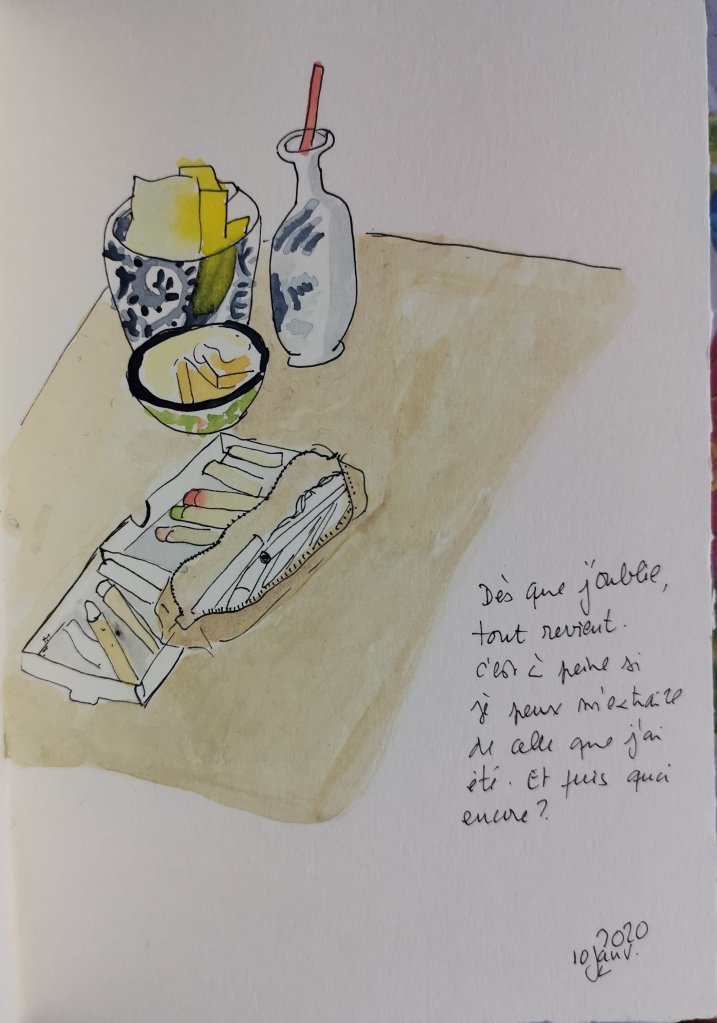 Dès que j'oublie,
tout revient.
c'est à peine si
je peux m'extraire
de celle que j'ai
été. Et puis quoi
encore ?
2020
10 janv.